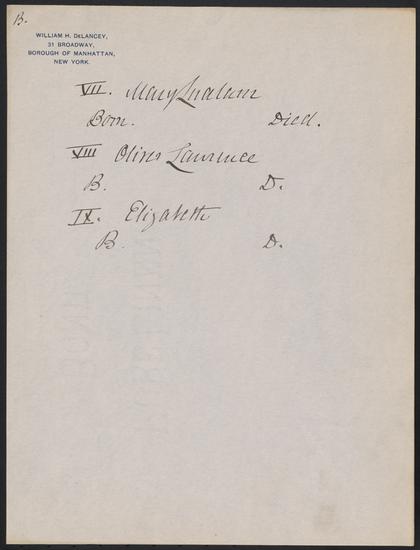 B.
WILLIAM H. DELANCEY,
31 BROADWAY,
BOROUGH OF MANHATTAN,
NEW YORK.
VII. Mary
Born. Died.
VIII Oliver Lawrence
B. D.
IX. Elizabeth
B. D.